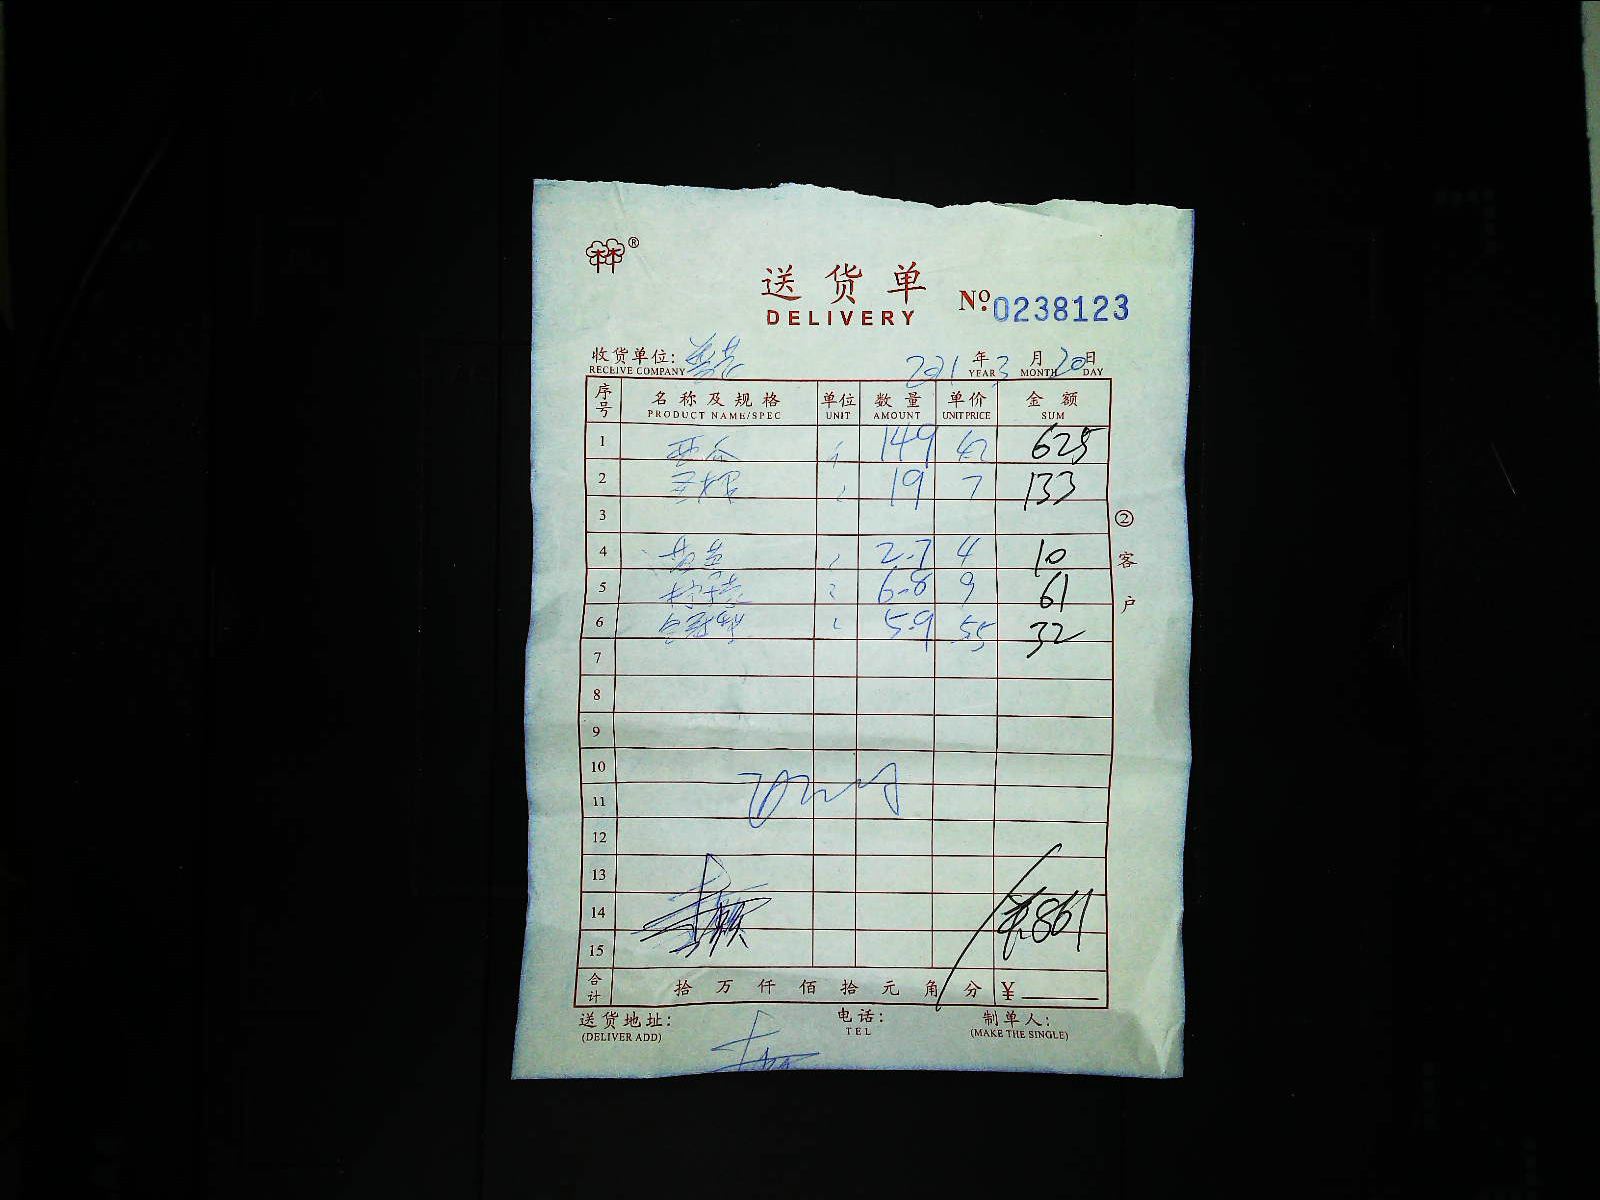 ®
送货单
DELIVERY
No. 0238123
收货单位:
RECEIVE COMPANY
221 年 3 月 20 日
YEAR MONTH DAY
序号 名称及规格 单位 数量 单价 金额
PRODUCT NAME/SPEC UNIT AMOUNT UNIT PRICE SUM
1 西瓜 149 42 625
2 19 7 133
3
4 2.7 4 10
5 6.8 9 61
6 5.9 55 32
7
8
9
10
11
12
13
14 861
15
合计 拾 万 仟 佰 拾 元 角 分 ¥
② 客户
送货地址: 电话: 制单人:
(DELIVER ADD) TEL (MAKE THE SINGLE)